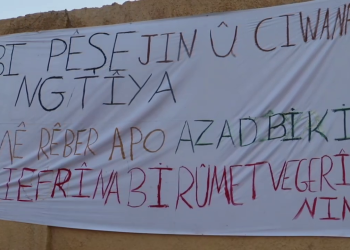 BI PÊŞEJIN Û CIWAN
NGTÎYA
NÊ RÊBER APO AZAD BIKI
EFRÎNA BI RÛMET VEGERÎ
NIN